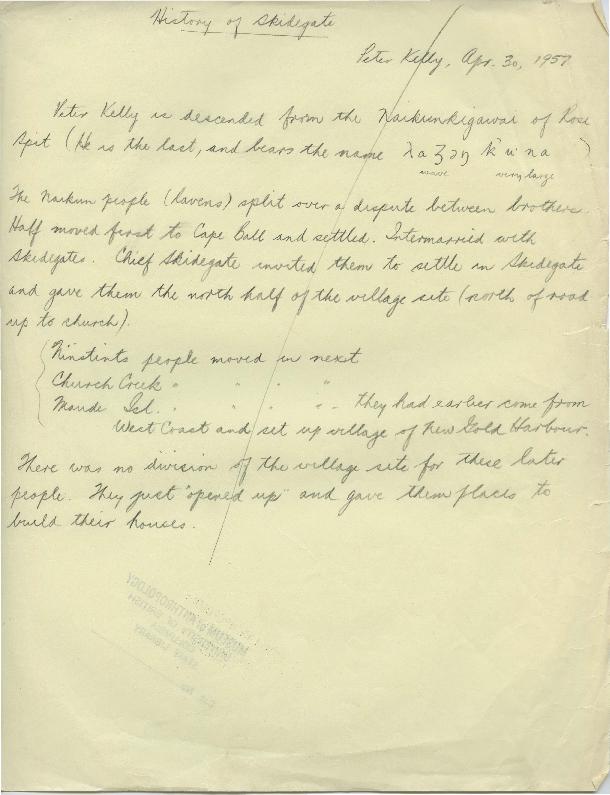 History of Skidegate
Peter Kelly, Apr. 30, 1957
Peter Kelly is descended from the Naikunkigawai of Rose
Spit (He is the last, and bears the name λaʒəŋ k̓u na )
wave very large
The Naikun people (ravens) split over a dispute between brothers.
Half moved first to Cape Ball and settled. Intermarried with
Skidegates. Chief Skidegate invited them to settle in Skidegate
and gave them the north half of the village site (north of road
up to church).
Ninstints people moved in next
Church Creek " " " "
Maude Isl. " " " " – they had earlier come from
West Coast and set up village of New Gold Harbour.
There was no division of the village site for these later
people. They just "opened up" and gave them places to
build their houses.
MUSEUM OF ANTHROPOLOGY
UNIVERSITY OF BRITISH
COLUMBIA
LIBRARY